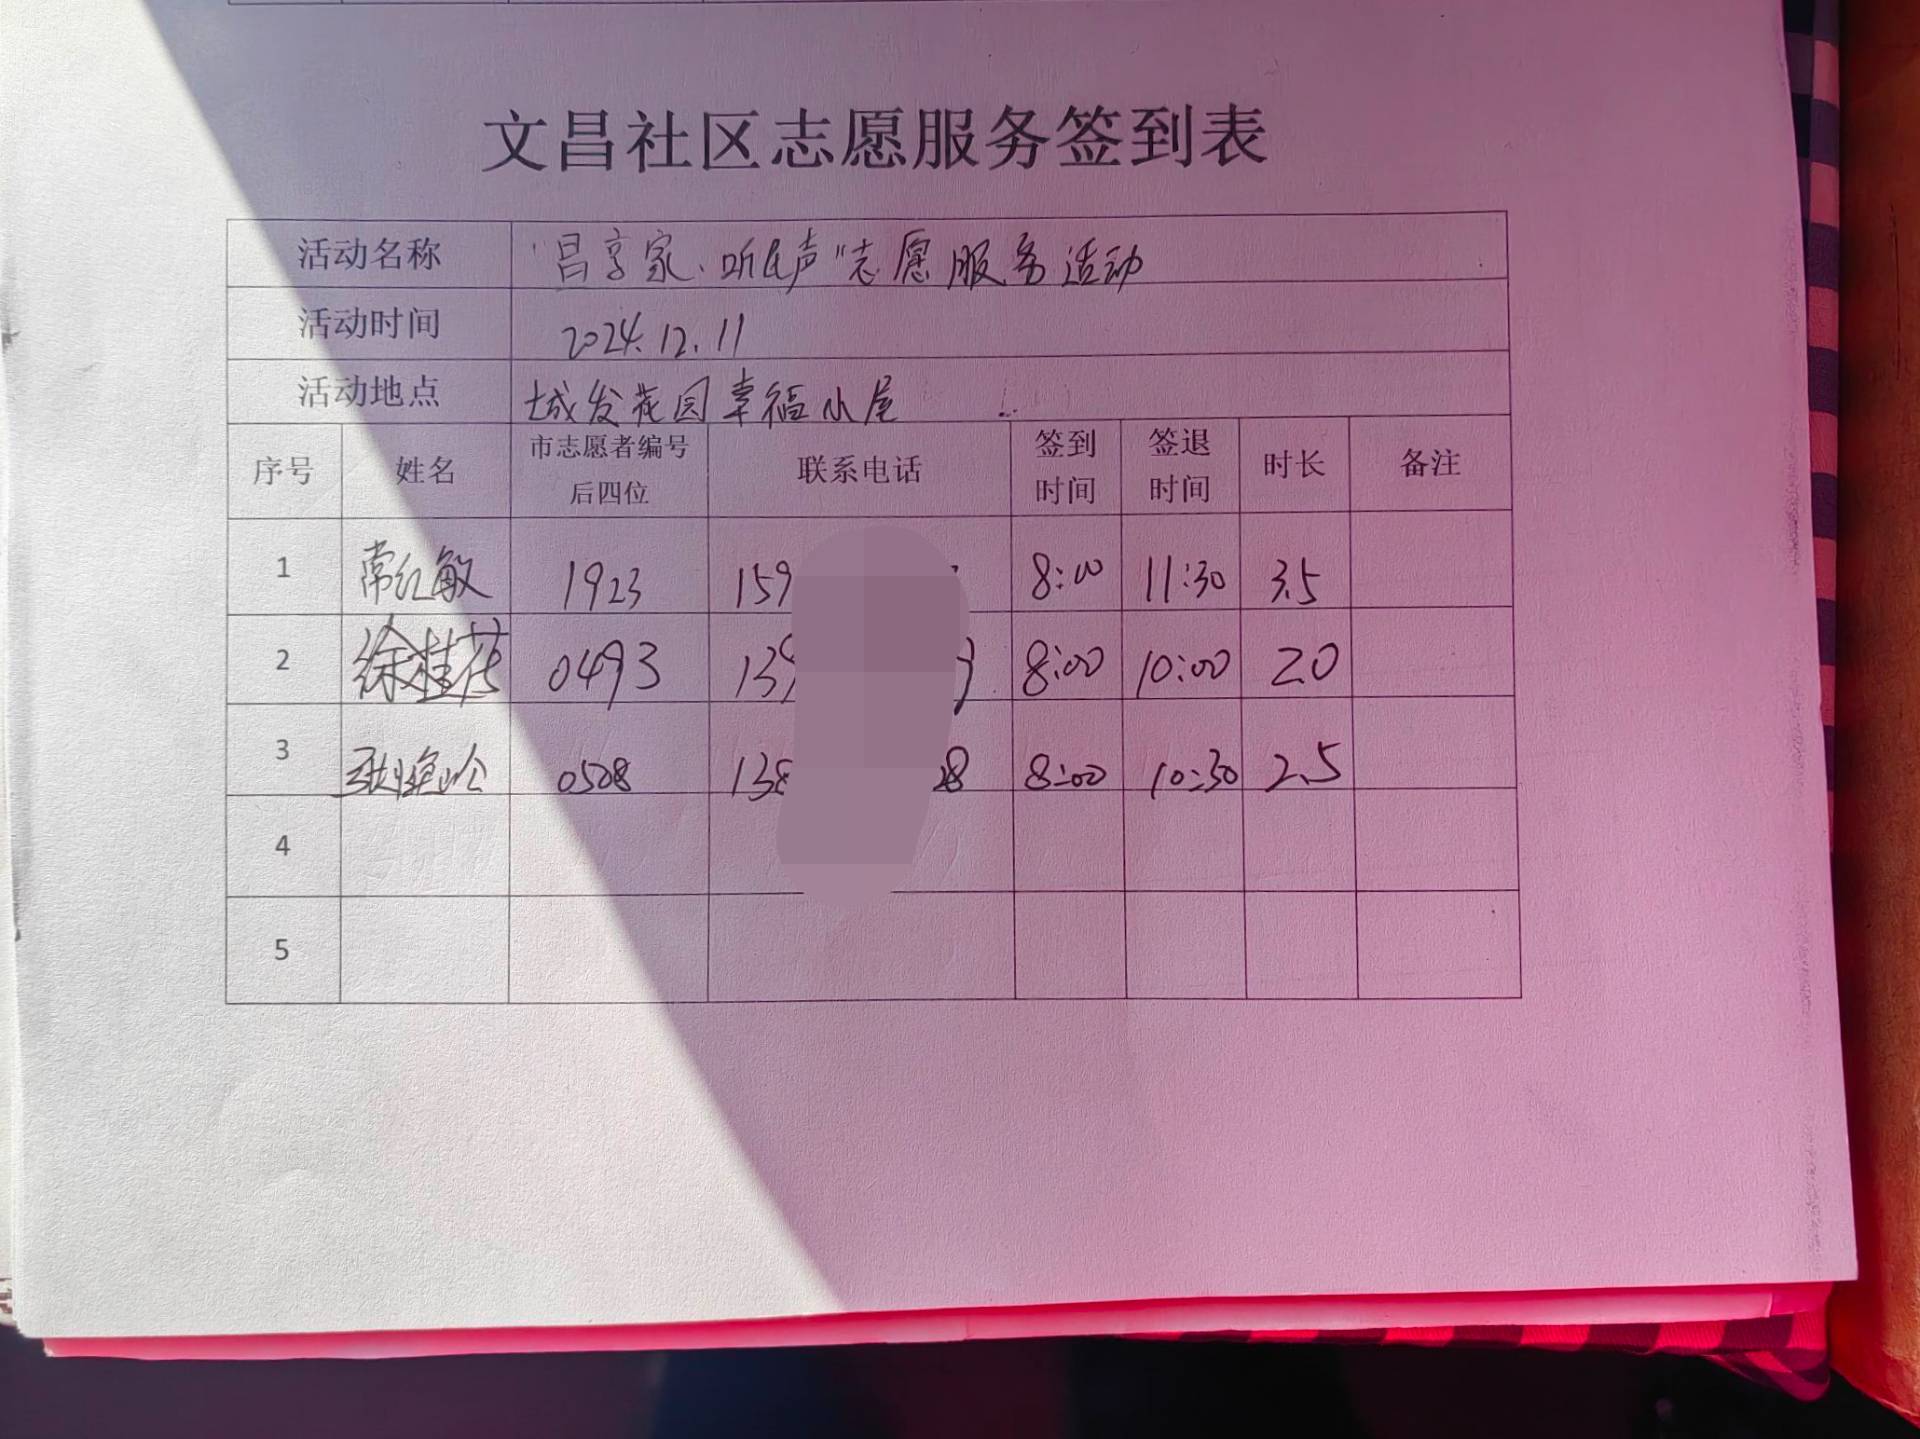 文昌社区志愿服务签到表
活动名称 "昌享家、听民声"志愿服务活动
活动时间 2024.12.11
活动地点 城发花园幸福小屋
序号 姓名 市志愿者编号后四位 联系电话 签到时间 签退时间 时长 备注
1 常红敏 1923 159 8:00 11:30 3.5
2 徐桂花 0493 139 8:00 10:00 2.0
3 0508 138 28 8:00 10:30 2.5
4
5